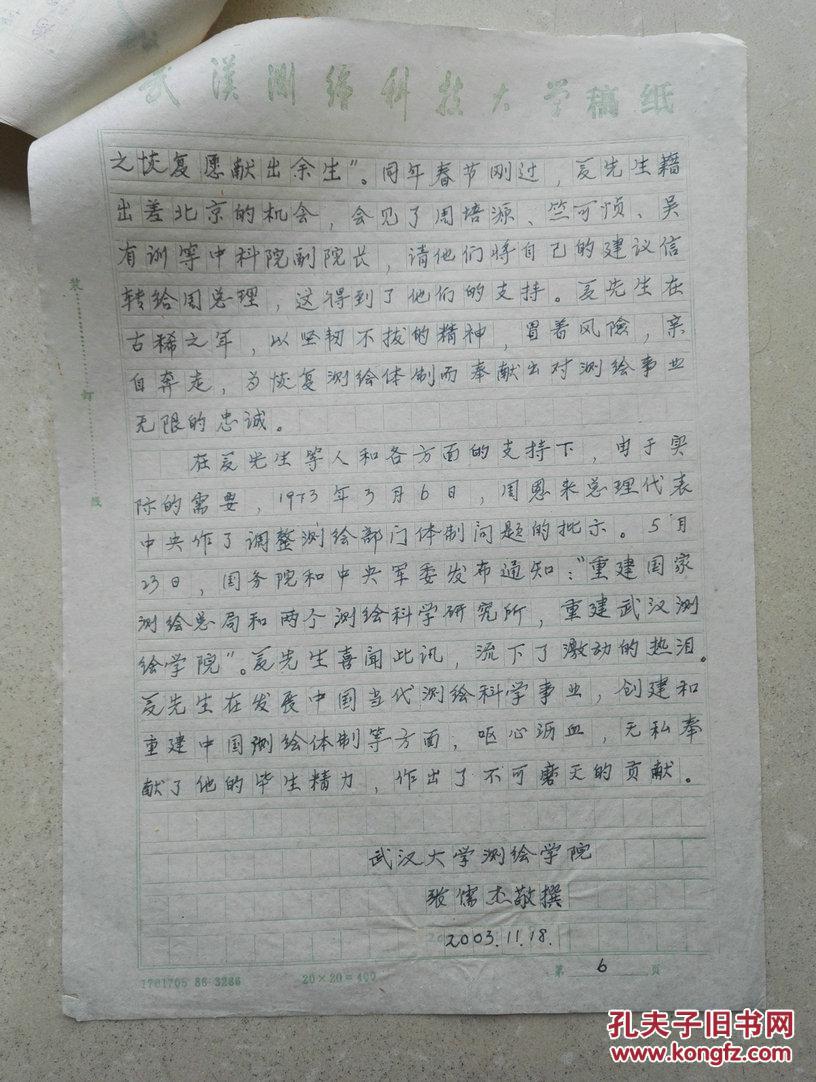 武汉测绘科技大学稿纸
之恢复愿献出余生”。同年春节刚过，夏先生藉
出差北京的机会，会见了周培源、竺可桢、吴
有训等中科院副院长，请他们将自己的建议信
转给周总理，这得到了他们的支持。夏先生在
古稀之年，以坚韧不拔的精神，冒着风險，亲
自奔走，为恢复测绘体制而奉献出对测绘事业
无限的忠诚。
在夏先生等人和各方面的支持下，由于实
际的需要，1973年3月6日，周恩来总理代表
中央作了调整测绘部门体制问题的批示。5月
23日，国务院和中央军委发布通知：“重建国家
测绘总局和两个测绘科学研究所，重建武汉测
绘学院”。夏先生喜闻此讯，流下了激动的热泪。
夏先生在发展中国当代测绘科学事业，创建和
重建中国测绘体制等方面，呕心沥血，无私奉
献了他的毕生精力，作出了不可磨灭的贡献。
武汉大学测绘学院
张儒杰敬撰
2003.11.18.
装订线
1701705 86 3286 20×20=400 第 6 页
孔夫子旧书网
www.kongfz.com